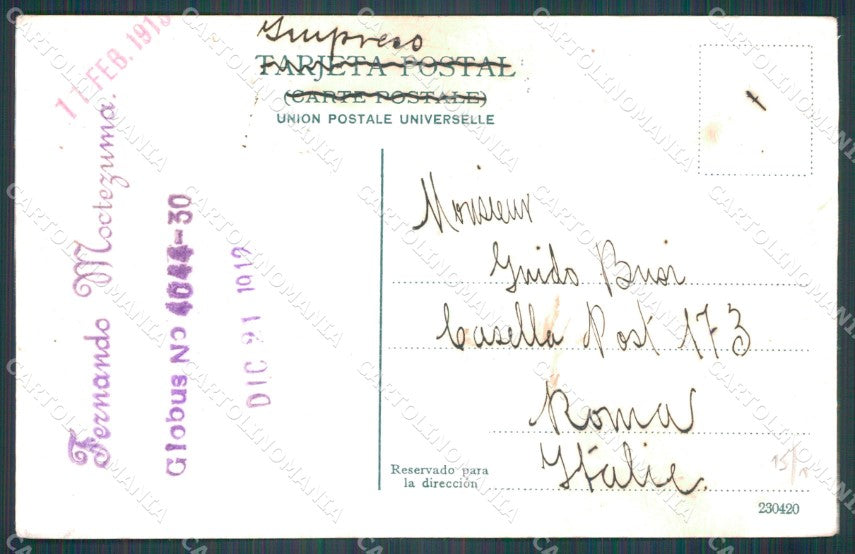 Impreso
TARJETA POSTAL
(CARTE POSTALE)
UNION POSTALE UNIVERSELLE
FEB. 191
Fernando Moctezuma.
Globus No 4044-30
DIC 21 1912
Monsieur
Guido Busi
Casella Post 173
Roma
Italie.
Reservado para
la dirección
230420
CARTOLINOMANIA